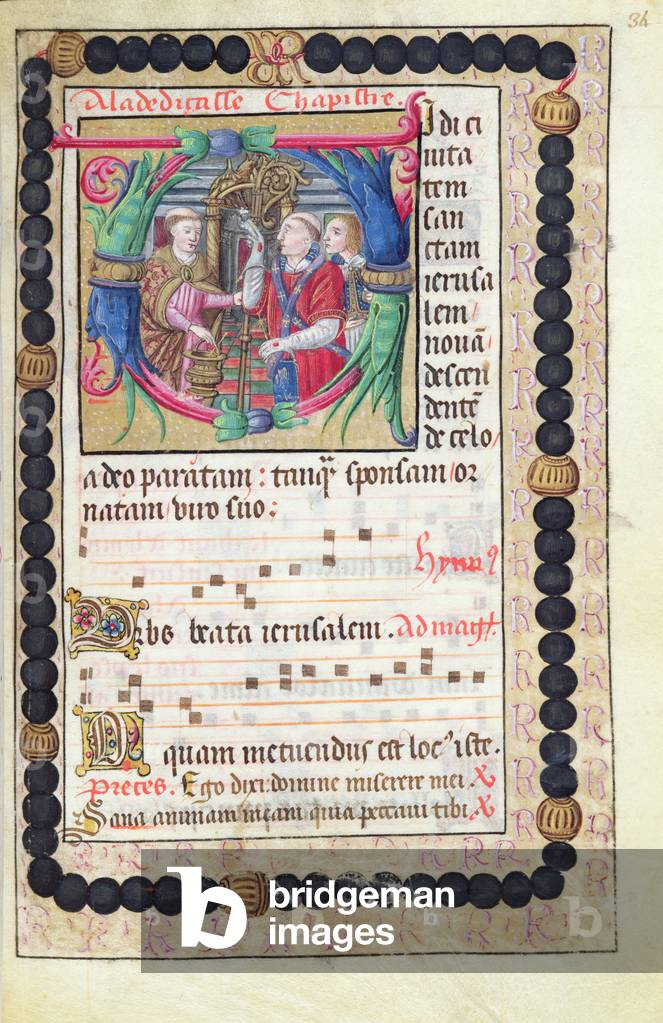 34
A la dedicasse Chapistre.
Idi ci
uita
tem
san
ctam
ierusa
lem/
nouā/
descen
dentē
de celo/
a deo paratam: tanqͣ sponsam/or
natam/viro suo:
Hymn9
Urbs beata ierusalem. Ad maḡt.
O quam metuendus est loc9 iste.
Preces. Ego dixi: domine miserere mei. ꝶ
Sana animam meam quia peccaui tibi. ꝶ
bridgeman
images